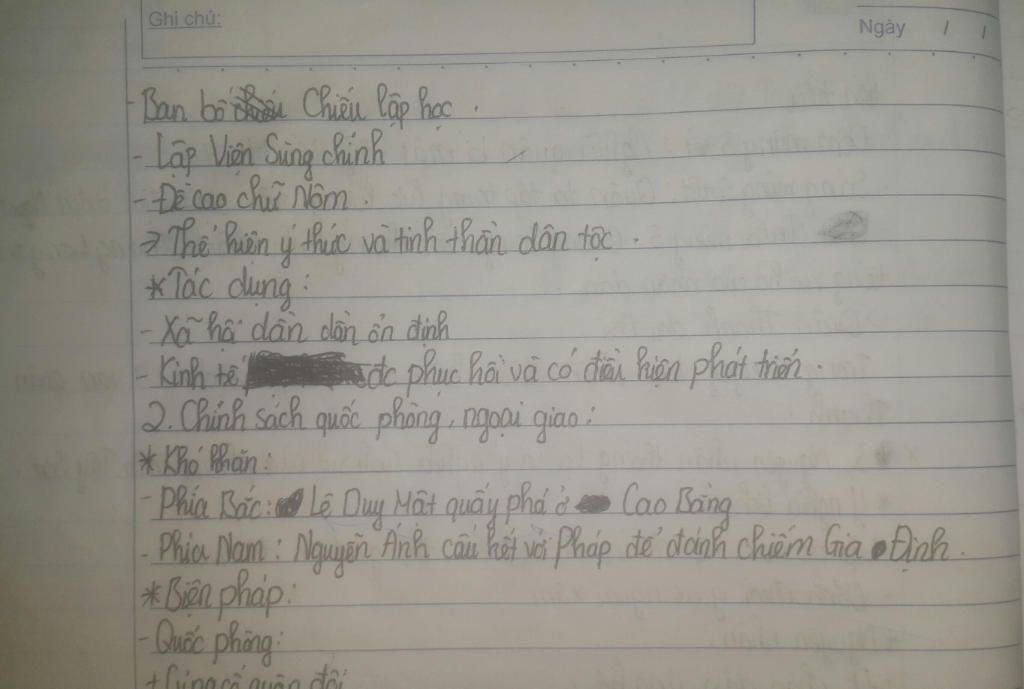 Ghi chú:
Ngày / /
- Ban bố Chiếu lập học.
- Lập Viện Sùng chính
- Đề cao chữ Nôm.
=> Thể hiện ý thức và tinh thần dân tộc.
* Tác dụng:
- Xã hội dần dần ổn định
- Kinh tế đc phục hồi và có điều kiện phát triển.
2. Chính sách quốc phòng, ngoại giao:
* Khó khăn:
- Phía Bắc: Lê Duy Mật quấy phá ở Cao Bằng
- Phía Nam: Nguyễn Ánh cấu kết với Pháp để đánh chiếm Gia Định.
* Biện pháp:
- Quốc phòng:
+ Củng cố quân đội